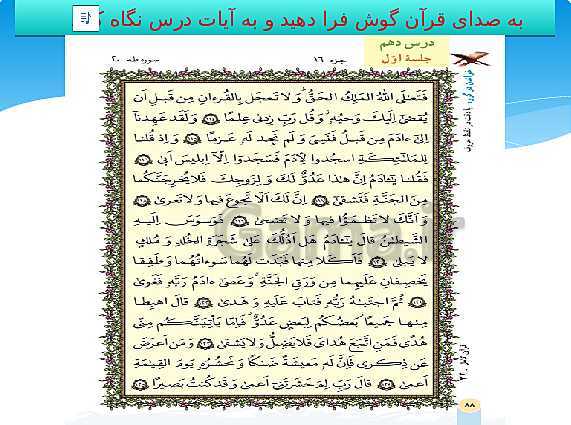 به صدای قرآن گوش فرا دهید و به آیات درس نگاه ک
درس دهم
جلسهٔ اوّل
جزء ۱۶
سوره طه ۲۰
فَتَعٰلَى اللّٰهُ المَلِكُ الحَقُّ وَلا تَعجَل بِالقُرءانِ مِن قَبلِ اَن
يُقضىٰ اِلَيكَ وَحيُه وَ قُل رَبِّ زِدنى عِلمًا وَلَقَد عَهِدنا
اِلىٰ ءادَمَ مِن قَبلُ فَنَسِىَ وَلَم نَجِد لَه عَزمًا وَ اِذ قُلنا
لِلمَلٰئِكَةِ اسجُدوا لِاٰدَمَ فَسَجَدوا اِلّا اِبليسَ اَبىٰ
فَقُلنا يٰادَمُ اِنَّ هٰذا عَدُوٌّ لَكَ وَ لِزَوجِكَ فَلا يُخرِجَنَّكُما
مِنَ الجَنَّةِ فَتَشقىٰ اِنَّ لَكَ اَلّا تَجوعَ فيها وَ لا تَعرىٰ
وَ اَنَّكَ لا تَظمَؤُا فيها وَ لا تَضحىٰ فَوَسوَسَ اِلَيهِ
الشَّيطٰنُ قالَ يٰادَمُ هَل اَدُلُّكَ عَلىٰ شَجَرَةِ الخُلدِ وَ مُلكٍ
لا يَبلىٰ فَاَكَلا مِنها فَبَدَت لَهُما سَوءٰتُهُما وَ طَفِقا
يَخصِفانِ عَلَيهِما مِن وَرَقِ الجَنَّةِ وَ عَصىٰ ءادَمُ رَبَّه فَغَوىٰ
ثُمَّ اجتَبٰهُ رَبُّه فَتابَ عَلَيهِ وَ هَدىٰ قالَ اهبِطا
مِنها جَميعًا بَعضُكُم لِبَعضٍ عَدُوٌّ فَاِمّا يَأتِيَنَّكُم مِنّى
هُدًى فَمَنِ اتَّبَعَ هُداىَ فَلا يَضِلُّ وَ لا يَشقىٰ وَ مَن اَعرَضَ
عَن ذِكرى فَاِنَّ لَه مَعيشَةً ضَنكًا وَ نَحشُرُه يَومَ القِيٰمَةِ
اَعمىٰ قالَ رَبِّ لِمَ حَشَرتَنى اَعمىٰ وَ قَد كُنتُ بَصيرًا
Gama.ir
۸۸